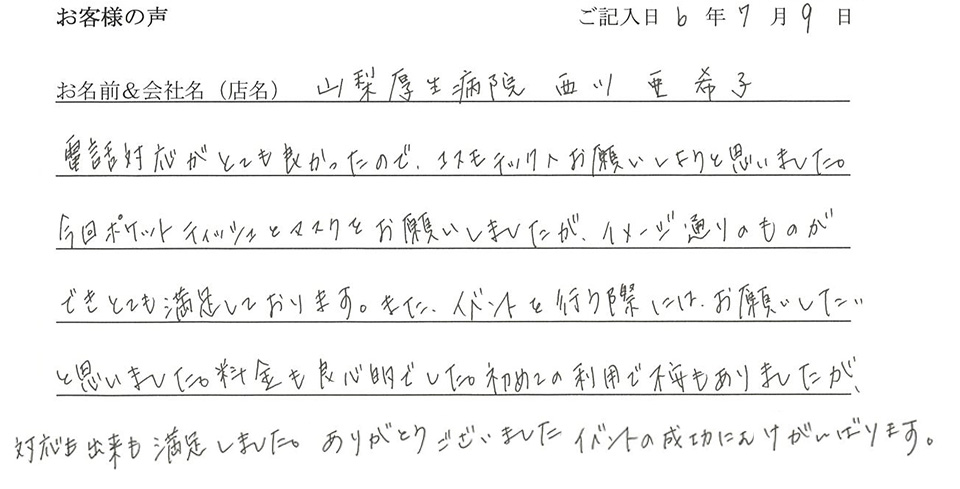 お客様の声 ご記入日 6 年 7 月 9 日
お名前&会社名（店名） 山梨厚生病院 西川 亜希子
電話対応がとても良かったので、コスモテックへお願いしようと思いました。
今回ポケットティッシュとマスクをお願いしましたが、イメージ通りのものが
できとても満足しております。また、イベントを行う際には、お願いしたい
と思いました。料金も良心的でした。初めての利用で不安もありましたが、
対応も出来も満足しました。ありがとうございました イベントの成功にむけがんばります。